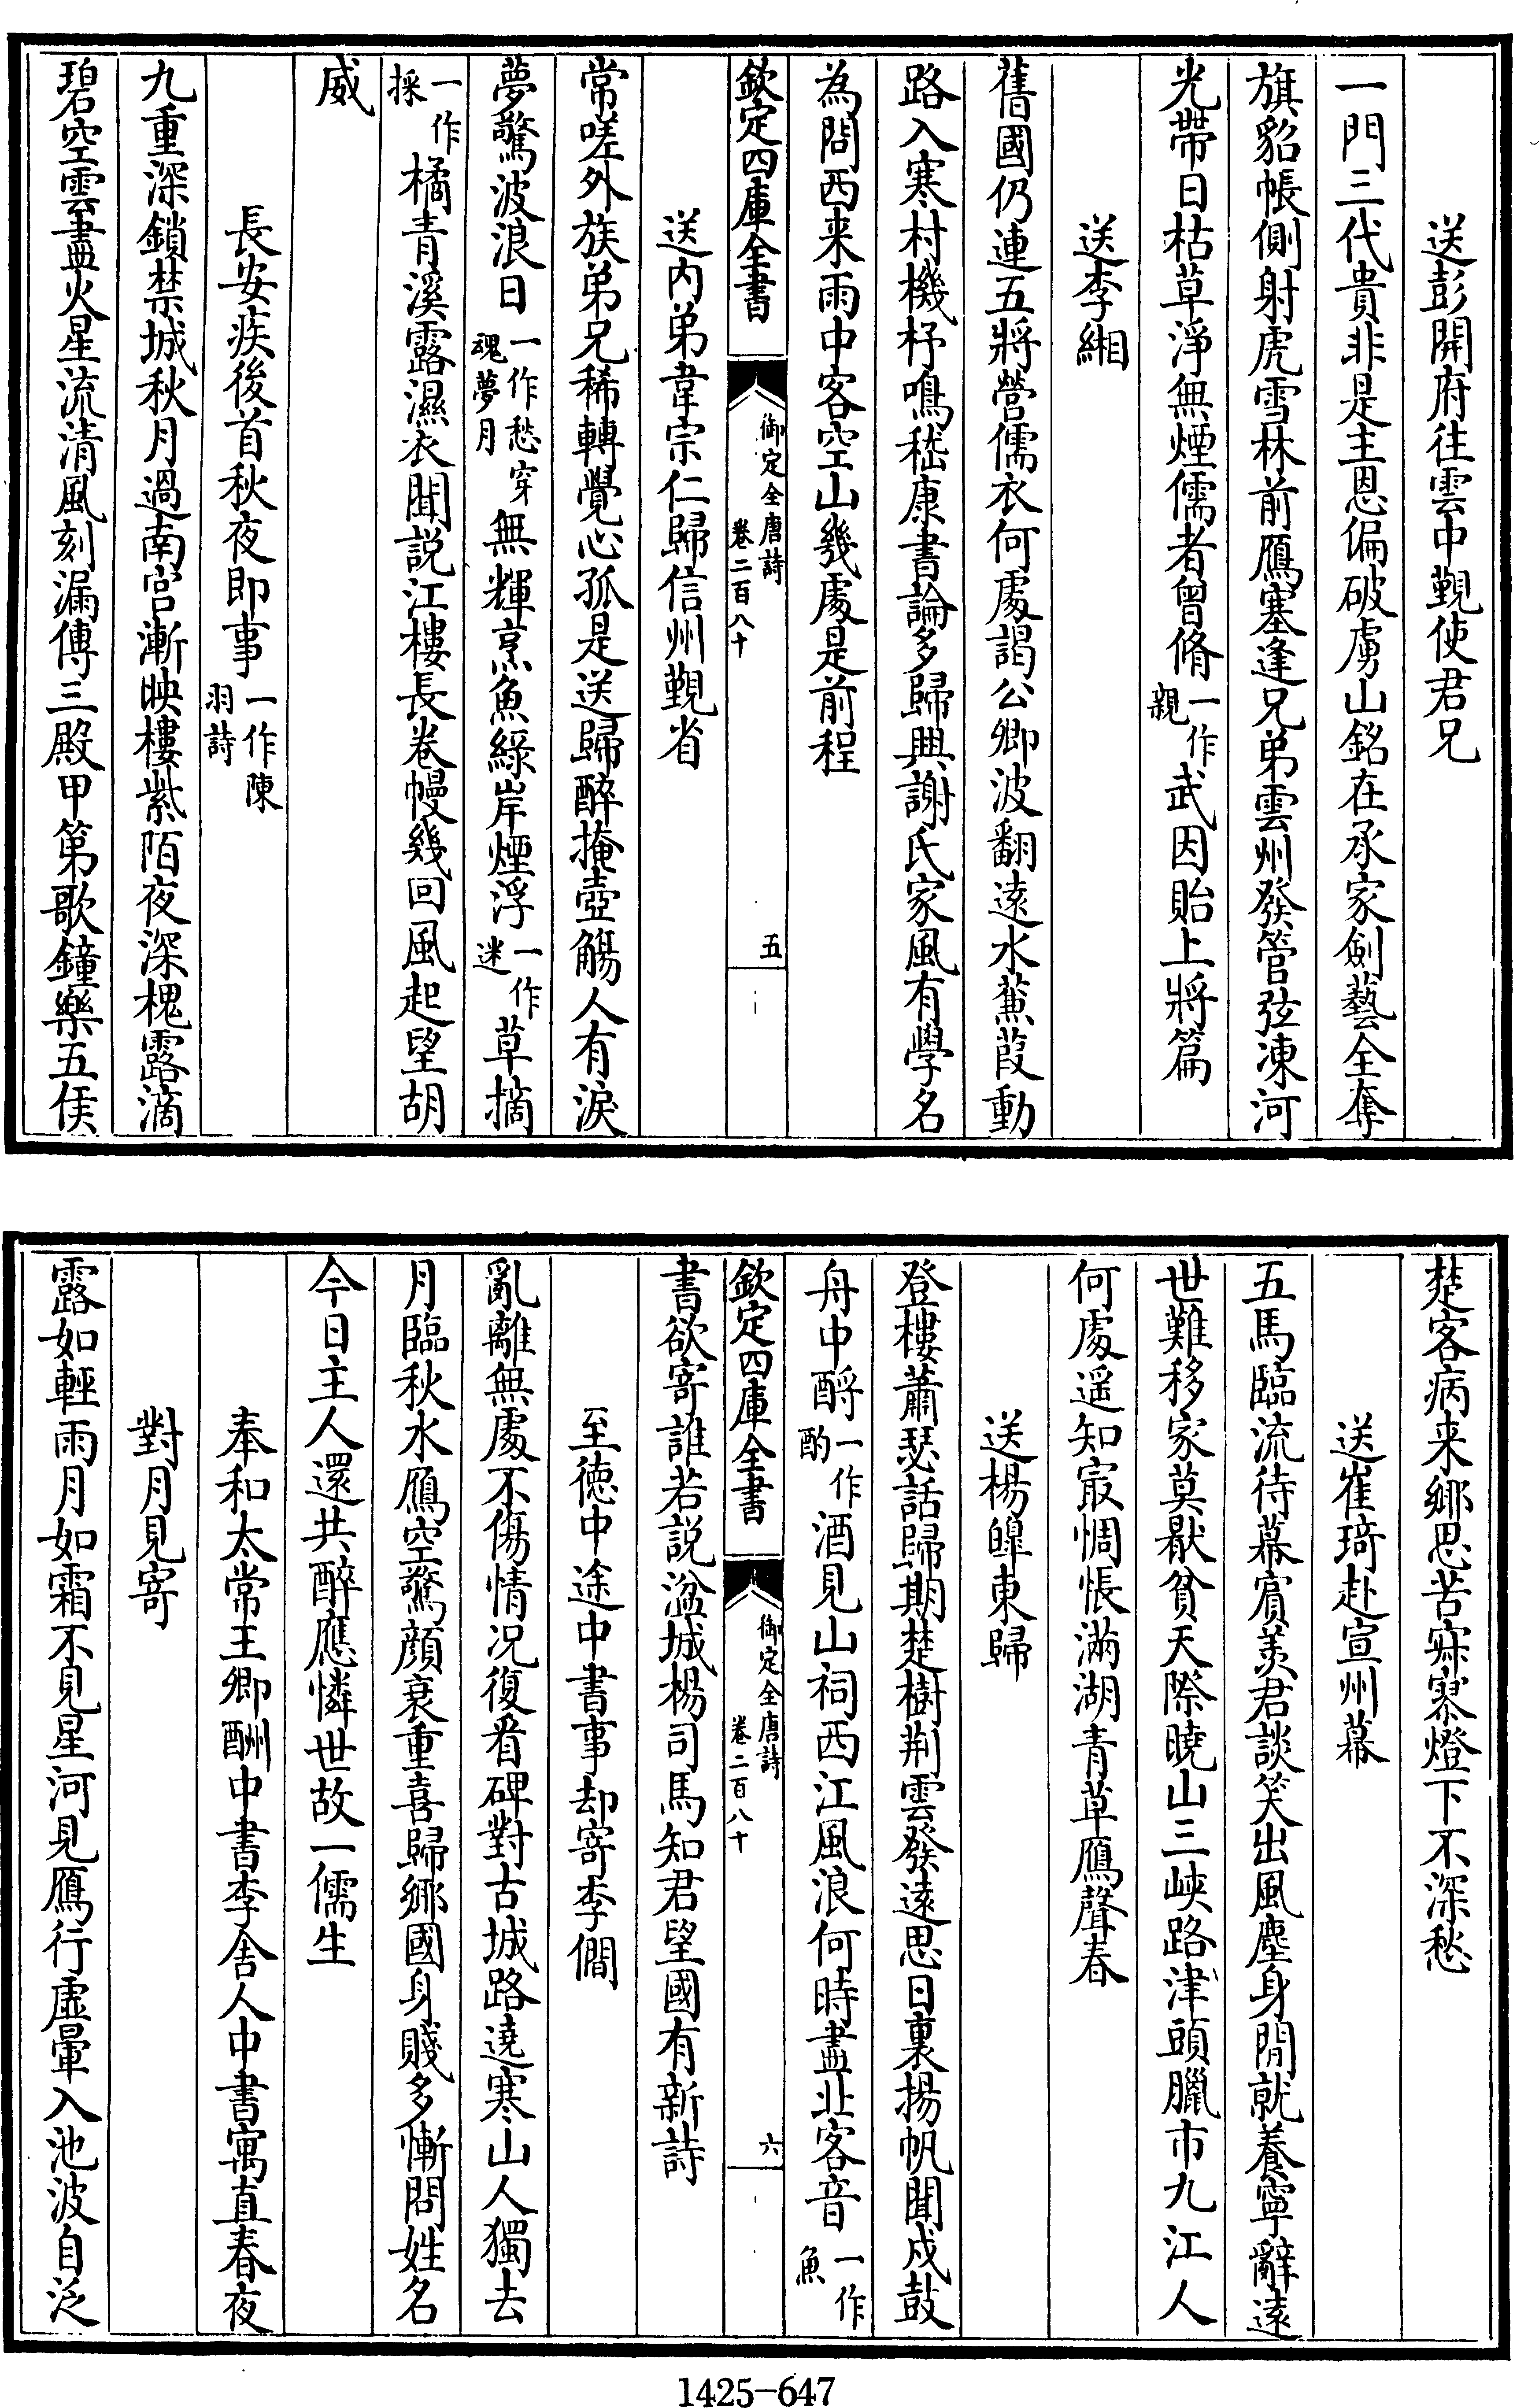 送彭開府往雲中覲使君兄
一門三代貴非是主恩偏破虜山銘在承家劍藝全奪
旗貂帳側射虎雪林前鴈塞逢兄弟雲州發管弦凍河
光帶日枯草淨無煙儒者曾脩一作親武因貽上將篇
送李緗
舊國仍連五將營儒衣何處謁公卿波翻遠水蒹葭動
路入寒村機杼鳴嵇康書論多歸興謝氏家風有學名
為問西来雨中客空山幾處是前程
欽定四庫全書 御定全唐詩 卷二百八十 五
送內弟韋宗仁歸信州覲省
常嗟外族弟兄稀轉覺心孤是送歸醉掩壺觴人有淚
夢驚波浪日一作愁穿魂夢月無輝烹魚綠岸煙浮一作迷草摘
一作採橘青溪露濕衣聞説江樓長卷幔幾回風起望胡
威
長安疾後首秋夜即事一作陳羽詩
九重深鎖禁城秋月過南宫漸映樓紫陌夜深槐露滴
碧空雲盡火星流清風刻漏傳三殿甲第歌鐘樂五侯
楚客病来鄉思苦寂寥燈下不深愁
送崔琦赴宣州幕
五馬臨流待幕賓羨君談笑出風塵身閒就養寧辭遠
世難移家莫厭貧天際曉山三峽路津頭臘市九江人
何處遥知㝡惆悵滿湖青草鴈聲春
送楊皥東歸
登樓蕭瑟話歸期楚樹荆雲發遠思日裏揚帆聞戍鼓
舟中酹一作酌酒見山祠西江風浪何時盡北客音一作魚
欽定四庫全書 御定全唐詩 卷二百八十 六
書欲寄誰若説湓城楊司馬知君望國有新詩
至徳中途中書事却寄李僴
亂離無處不傷情况復看碑對古城路遶寒山人獨去
月臨秋水鴈空驚顔衰重喜歸鄉國身賤多慚問姓名
今日主人還共醉應憐世故一儒生
奉和太常王卿酬中書李舍人中書寓直春夜
對月見寄
露如輕雨月如霜不見星河見鴈行虛暈入池波自泛
1425-647